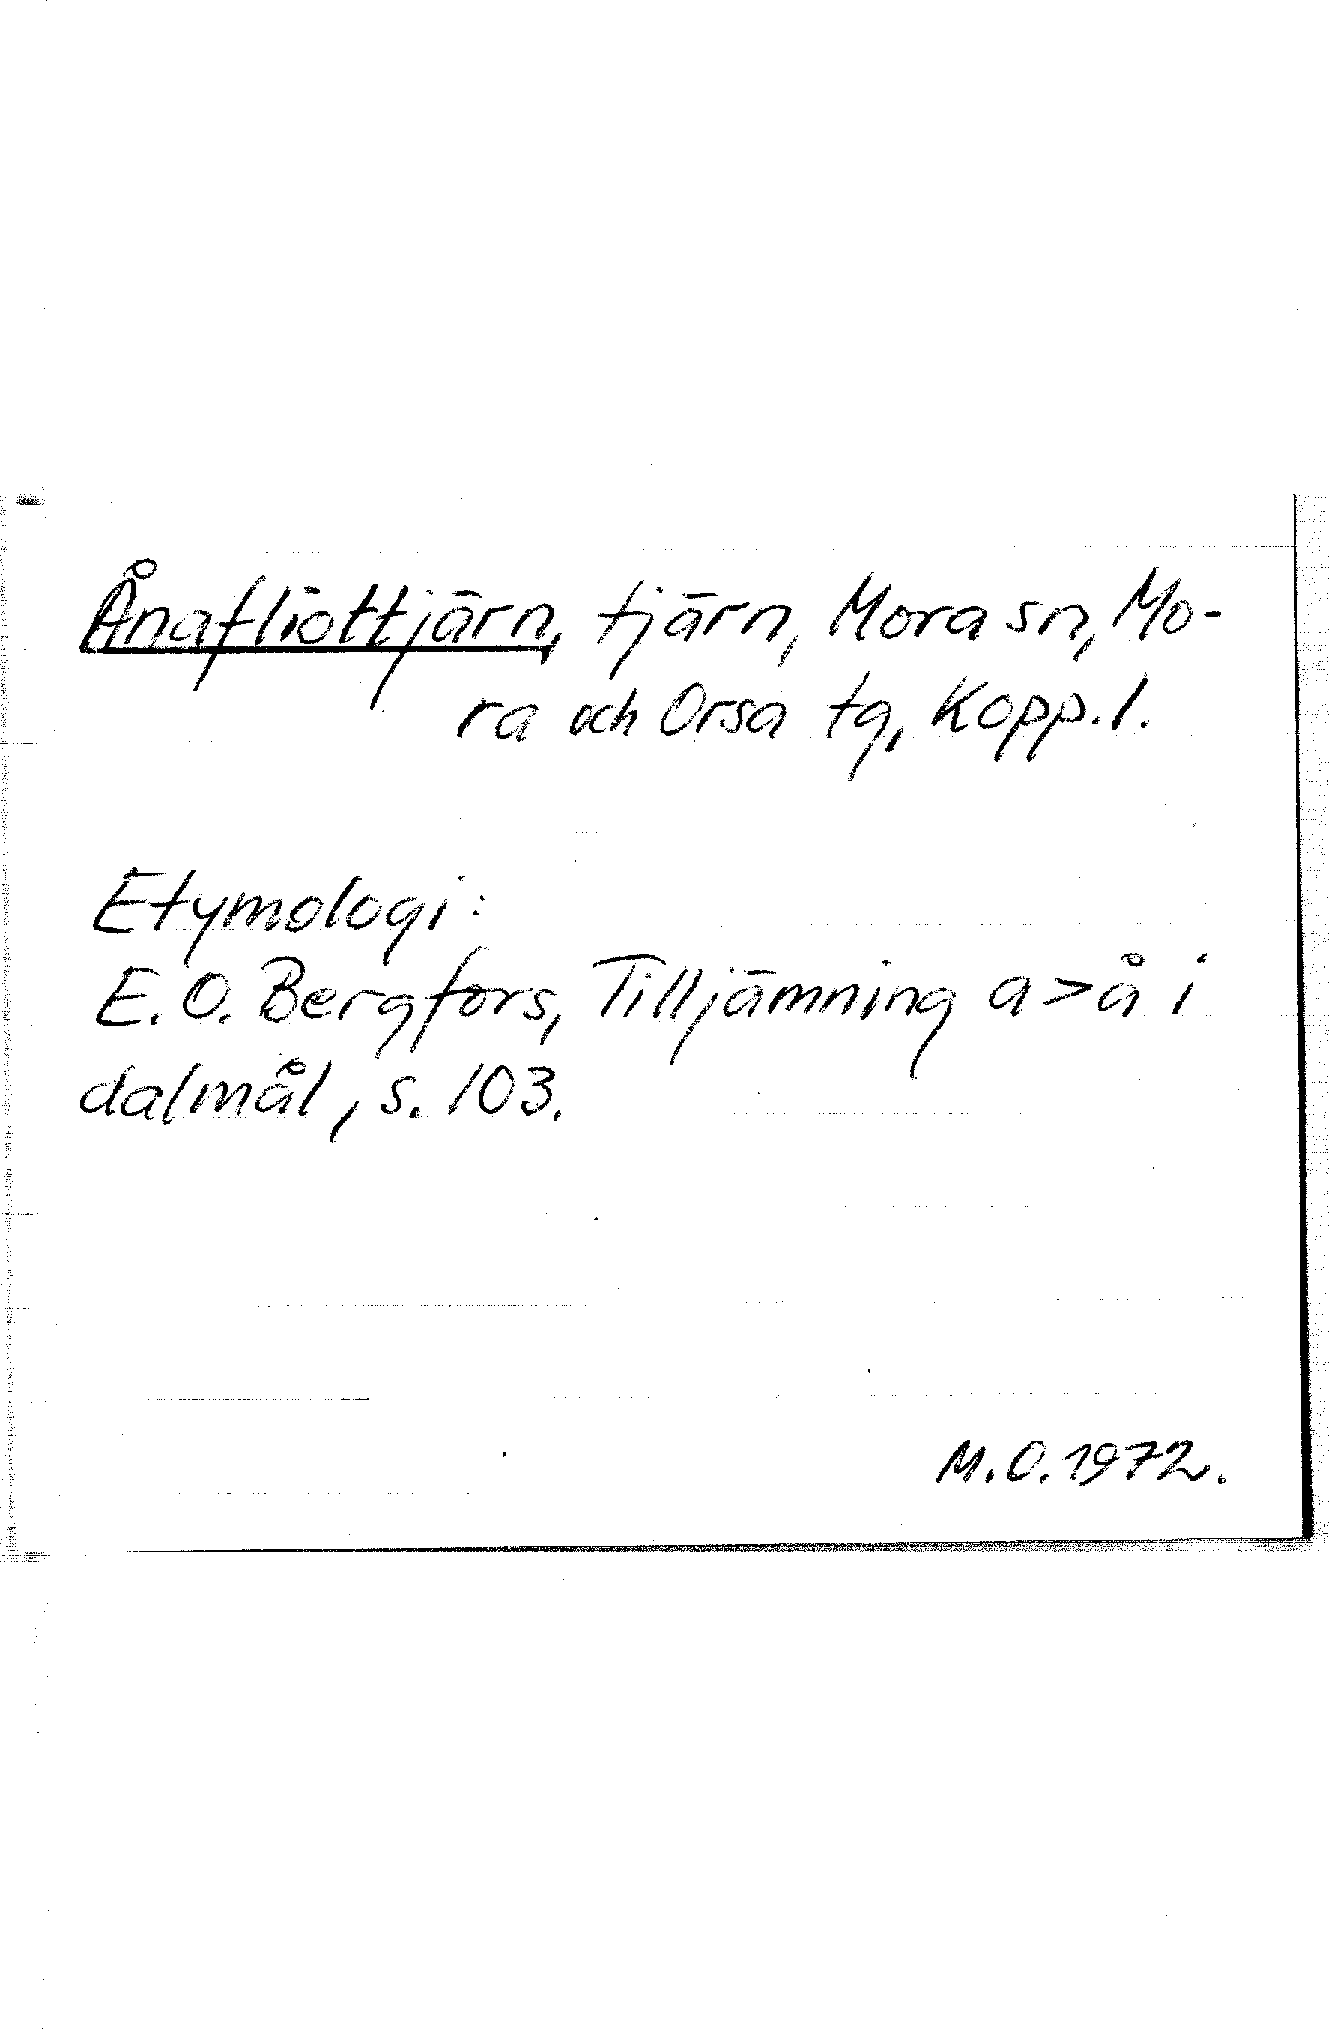 Ånafliottjärn, tjärn, Mora sn, Mo-
ra och Orsa tg, Kopp. l.
Etymologi:
E. O. Bergfors, Tilljämning a > å i
dalmål, s. 103.
M. O. 1972.